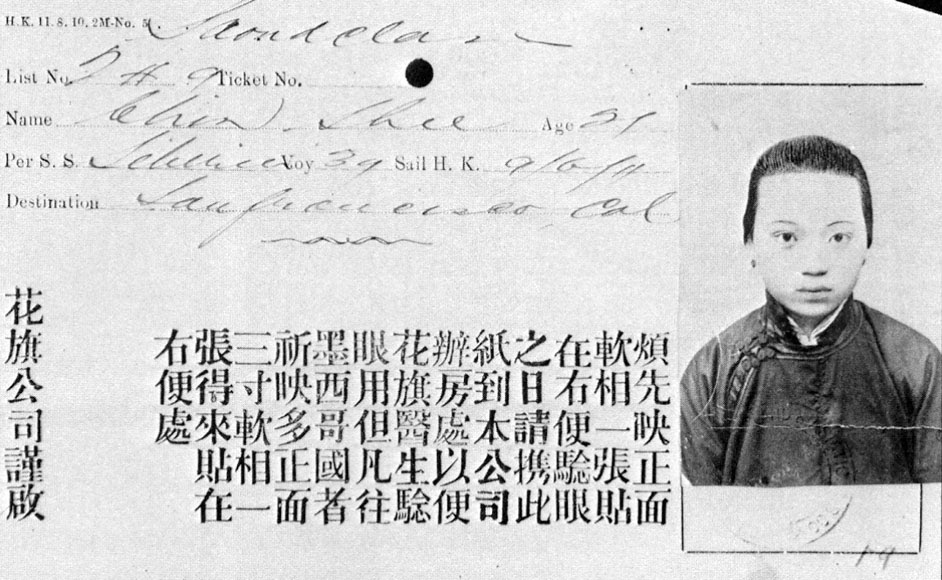 H.K. 11. 8. 10. 2M-No.
Second class
List No. Ticket No.
Name Chin Shee Age 21
Per S. S. Siberia Voy 39 Sail H. K.
Destination San francisco, Cal
煩先映正面
軟相一張貼
在右便騐眼
之日請携此
紙到本公司
辦房處以便
花旗醫生騐
眼用但凡往
墨西哥國者
祈映多正面
三寸軟相一
張得來貼在
右便處
花旗公司謹啟
19